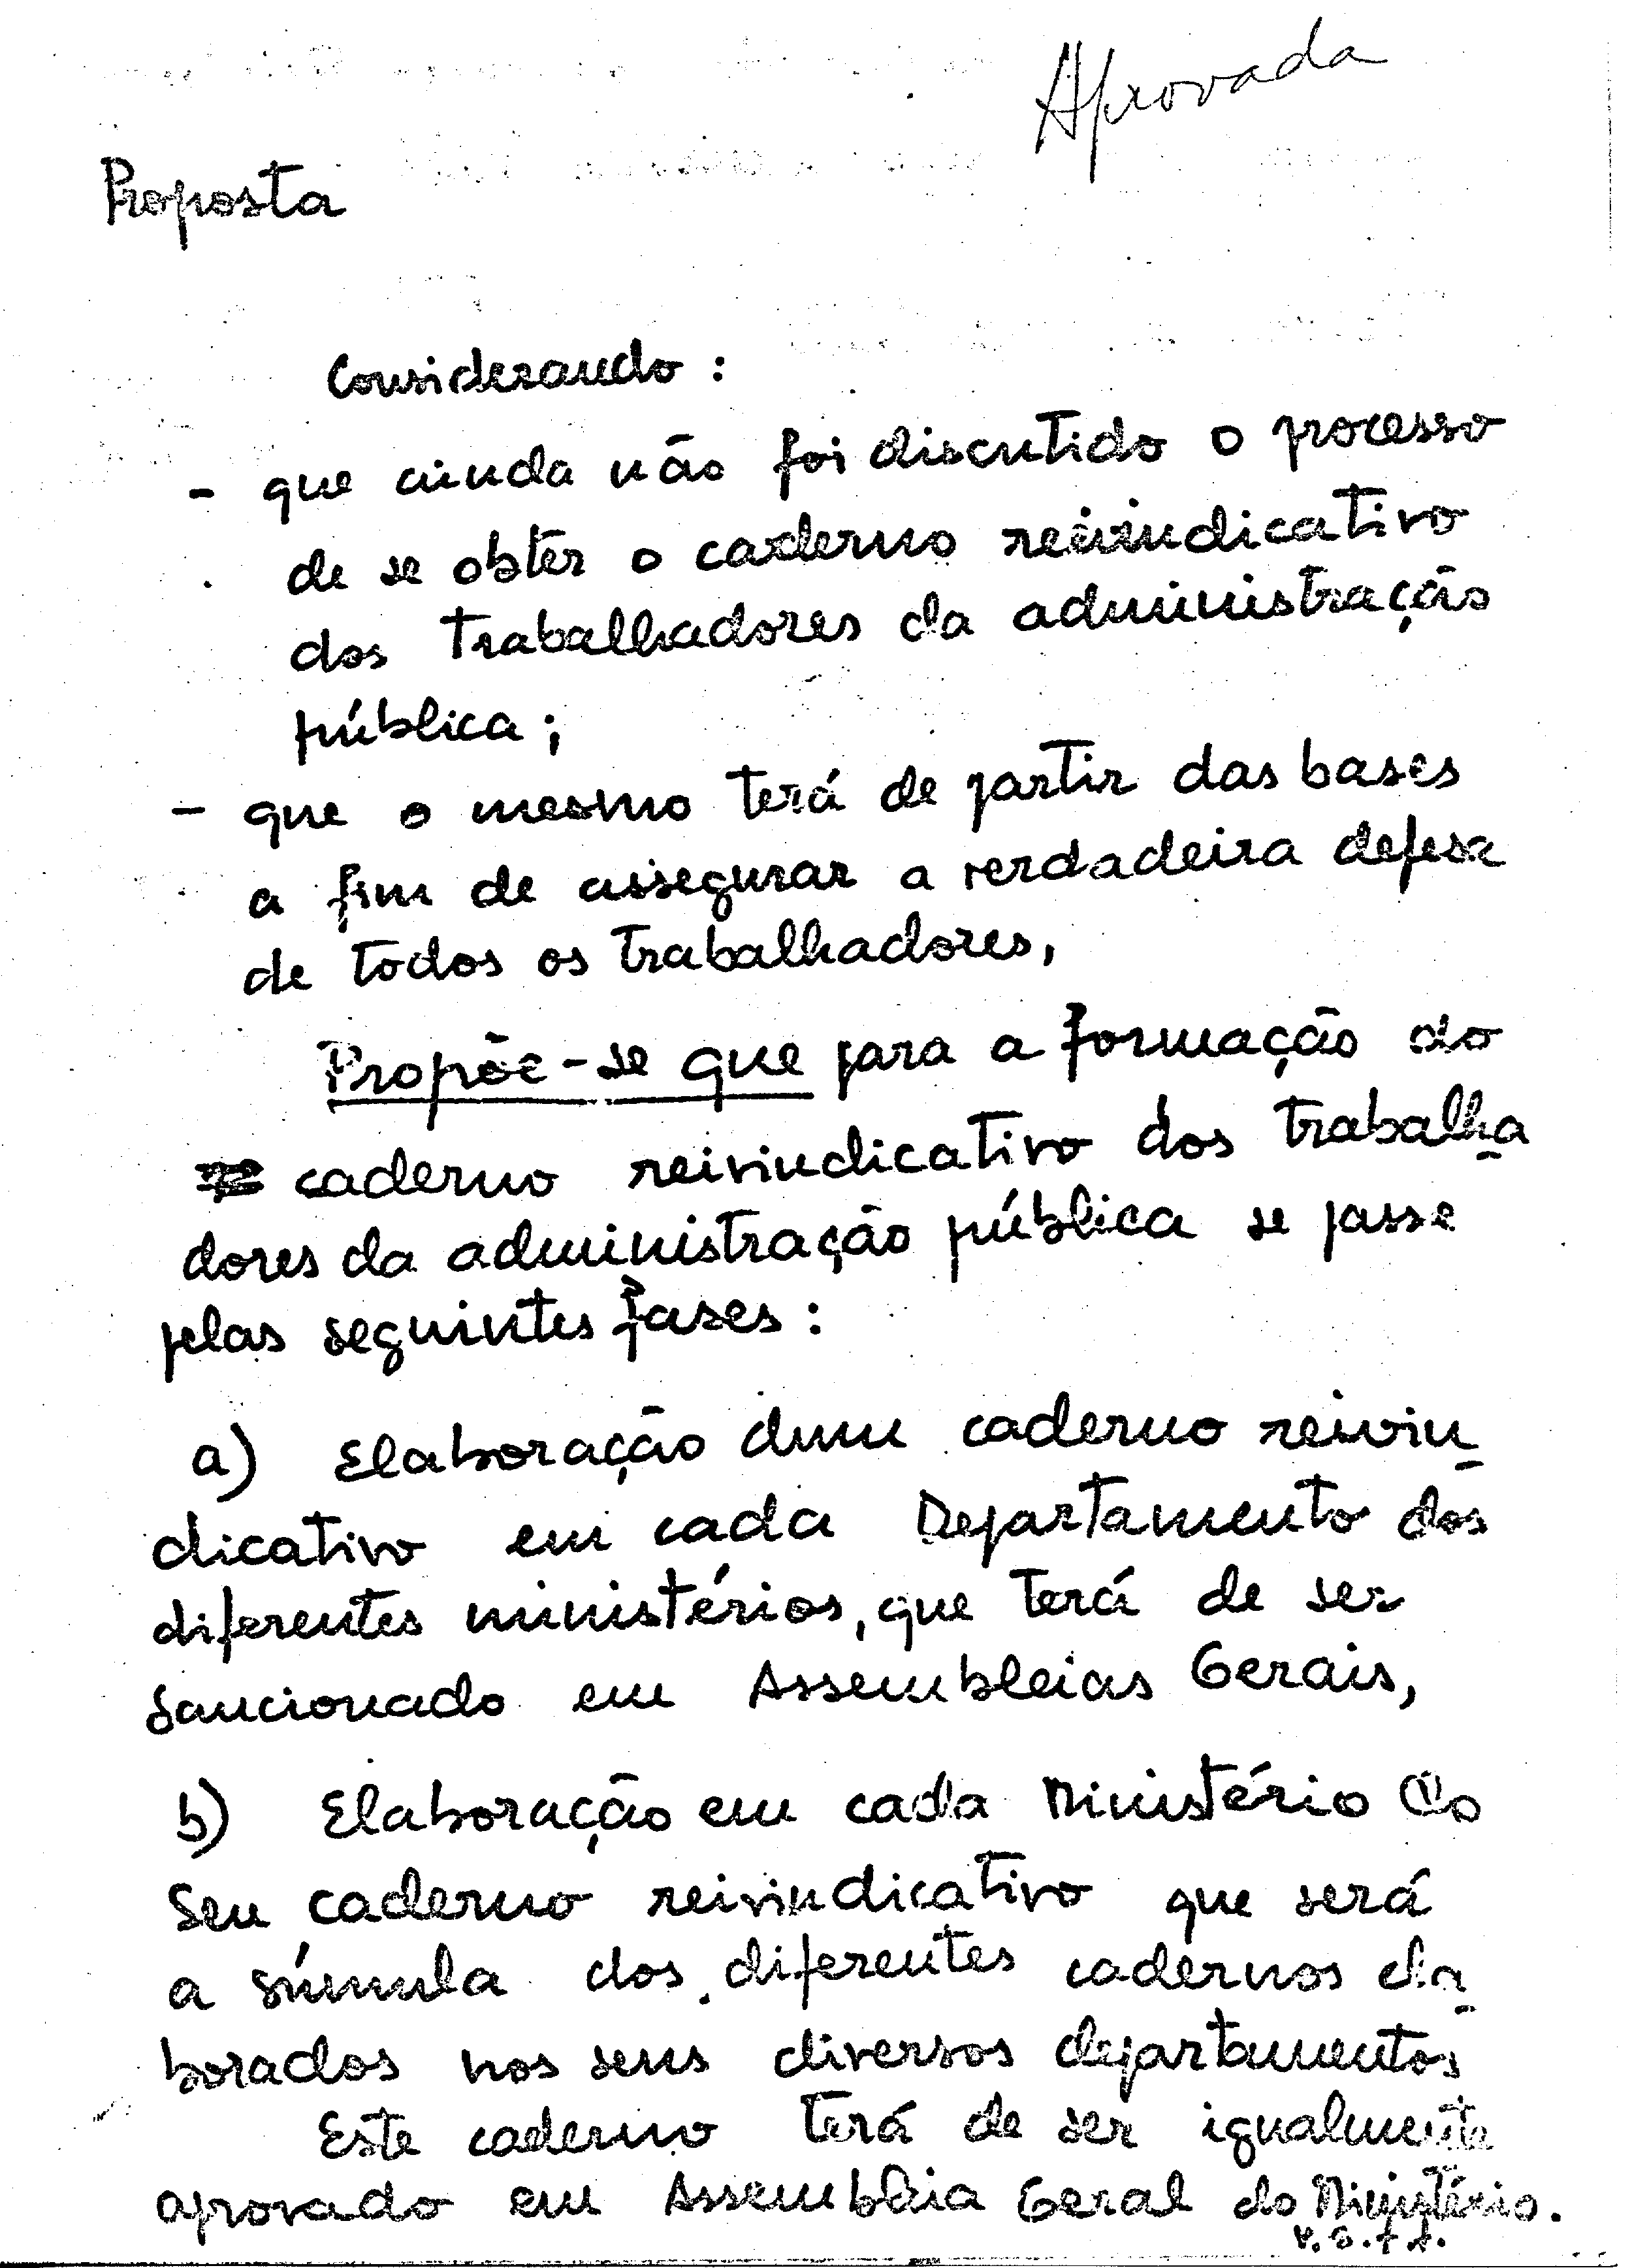 Aprovada
Proposta
Considerando :
- que ainda não foi discutido o processo
de se obter o caderno reivindicativo
dos trabalhadores da administração
pública ;
- que o mesmo terá de partir das bases
a fim de assegurar a verdadeira defesa
de todos os trabalhadores,
Propõe-se que para a formação do
caderno reivindicativo dos trabalha
dores da administração pública se passe
pelas seguintes fases :
a) Elaboração dum caderno reivin
dicativo em cada Departamento dos
diferentes ministérios, que terá de ser
sancionado em Assembleias Gerais,
b) Elaboração em cada Ministério do
seu caderno reivindicativo que será
a súmula dos diferentes cadernos ela
borados nos seus diversos departamentos
Este caderno terá de ser igualmente
aprovado em Assembleia Geral do Ministério.
V.S.F.F.